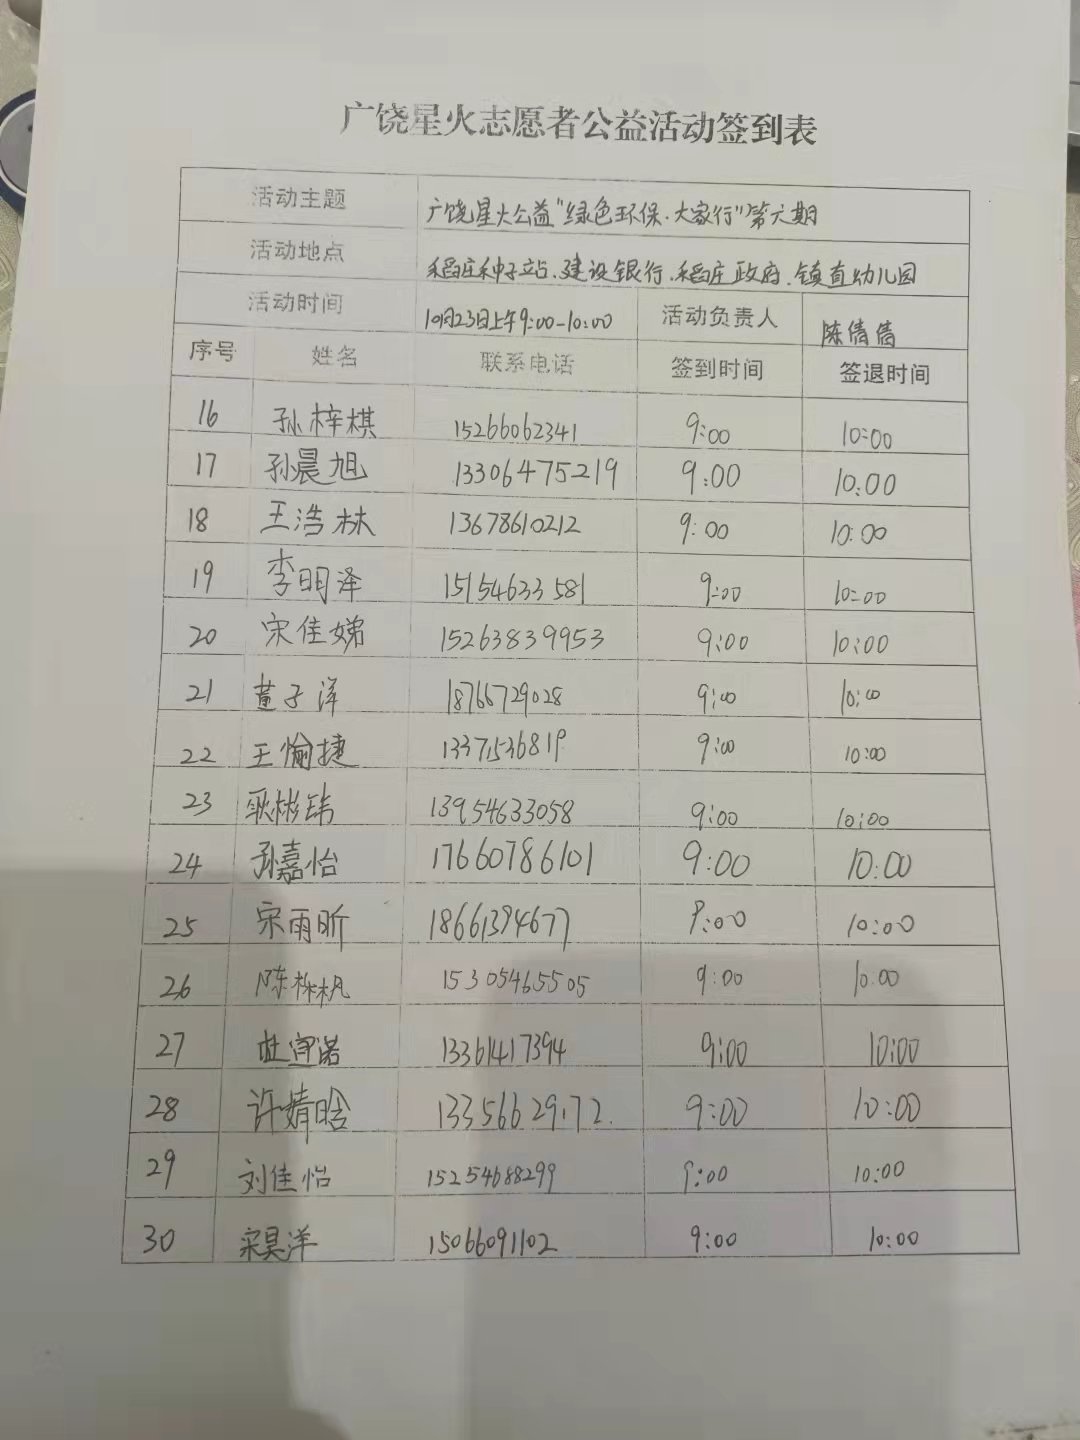 广饶星火志愿者公益活动签到表
活动主题 广饶星火公益"绿色环保·大家行"第六期
活动地点 稻庄种子站、建设银行、稻庄政府、镇直幼儿园
活动时间 10月23日上午9:00-10:00 活动负责人 陈倩倩
序号 姓名 联系电话 签到时间 签退时间
16 孙梓棋 15266062341 9:00 10:00
17 孙晨旭 13306475219 9:00 10:00
18 王浩林 13678610212 9:00 10:00
19 李明泽 15154633581 9:00 10:00
20 宋佳娣 15263839953 9:00 10:00
21 董子洋 18766729028 9:00 10:00
22 王愉捷 13371536819 9:00 10:00
23 耿彬玮 13954633058 9:00 10:00
24 孙嘉怡 17660786101 9:00 10:00
25 宋雨昕 18661394677 9:00 10:00
26 陈栎枫 15305465505 9:00 10:00
27 杜诺 13361417394 9:00 10:00
28 许婧晗 13356629172 9:00 10:00
29 刘佳怡 15254688299 9:00 10:00
30 宋昊洋 15066091102 9:00 10:00